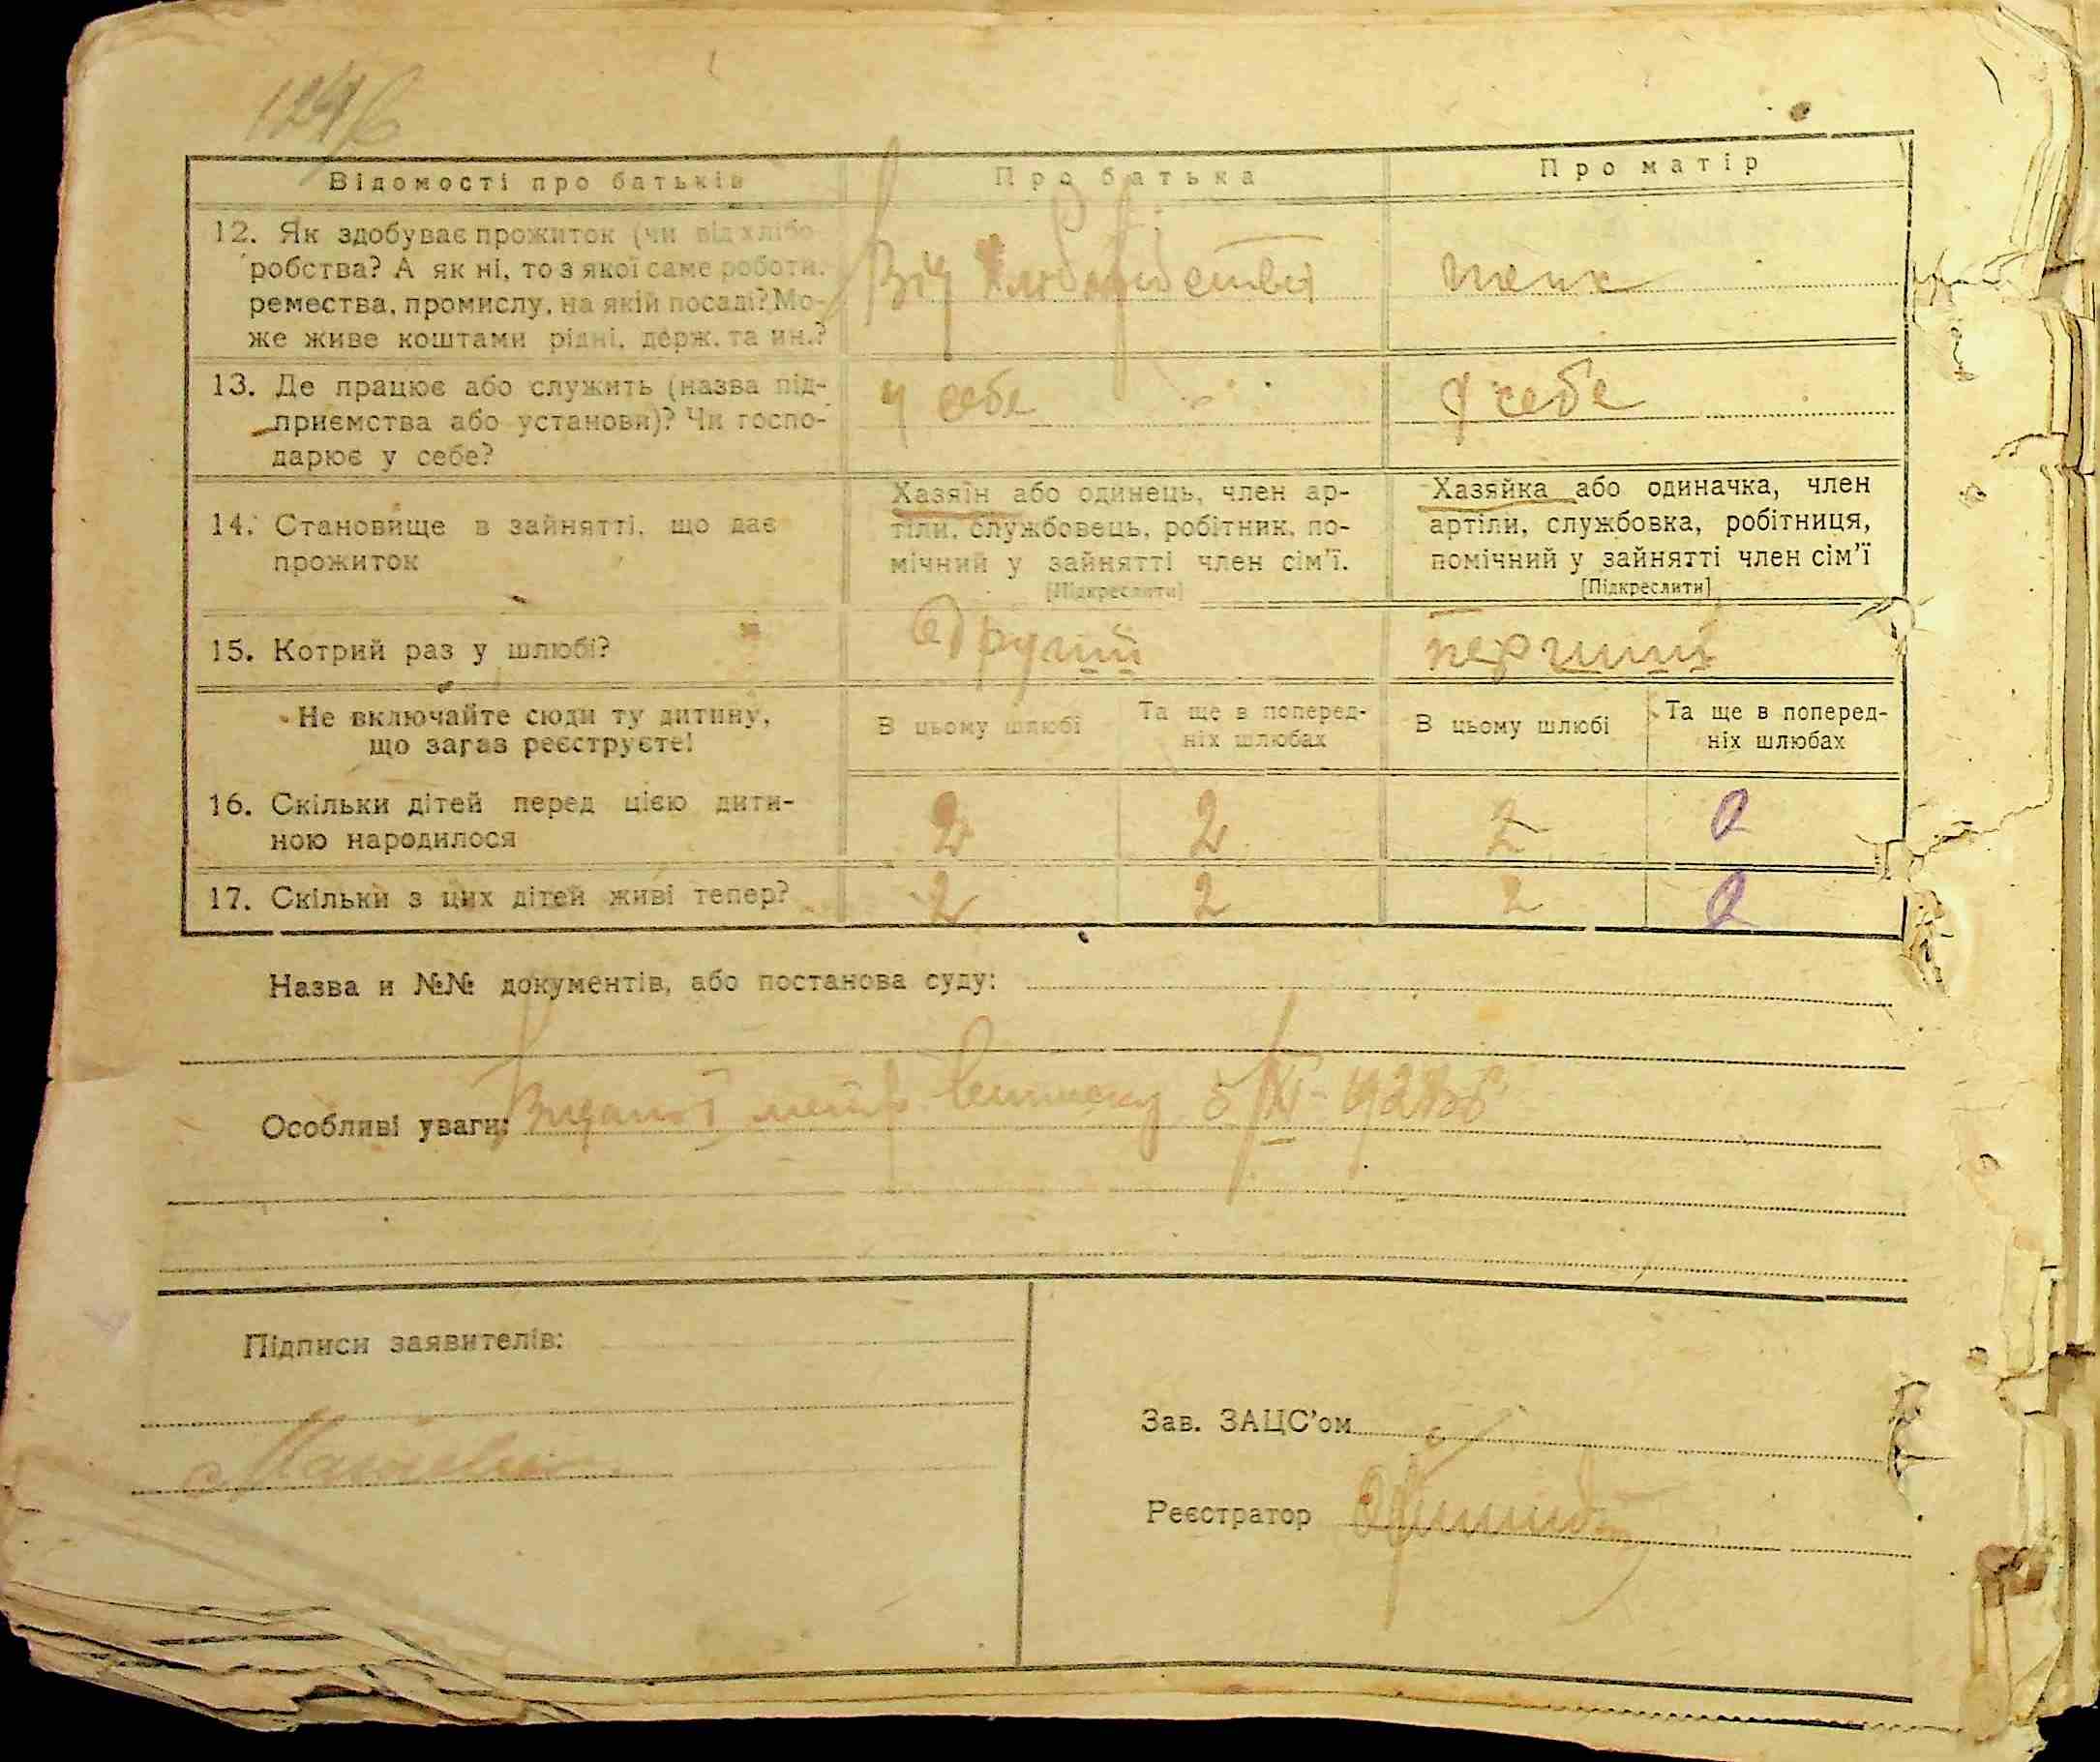 Відомості про батьків	Про батька	Про матір
12. Як здобуває прожиток (чи від хлібо-
робства? А як ні, то з якої саме роботи,
ремества, промислу, на якій посаді? Мо-
же живе коштами рідні, держ. та ин.?
Від хлоборобства
теж
13. Де працює або служить (назва під-
приємства або установи)? Чи госпо-
дарює у себе?
у себе
у себе
14. Становище в зайнятті, що дає
прожиток
Хазяїн або одинець, член ар-
тіли, службовець, робітник, по-
мічний у зайнятті член сім'ї.
[Підкреслити]
Хазяйка або одиначка, член
артіли, службовка, робітниця,
помічний у зайнятті член сім'ї
[Підкреслити]
15. Котрий раз у шлюбі?
другий
перший
Не включайте сюди ту дитину,
що зараз реєструєте!
В цьому шлюбі
Та ще в поперед-
ніх шлюбах
В цьому шлюбі
Та ще в поперед-
ніх шлюбах
16. Скільки дітей перед цією дити-
ною народилося
2	2	2	0
17. Скільки з цих дітей живі тепер?
2	2	2	0
Назва и №№ документів, або постанова суду:
Особливі уваги: метр виписку 5/XI-192
Підписи заявителів:
Зав. ЗАЦС'ом
Реєстратор